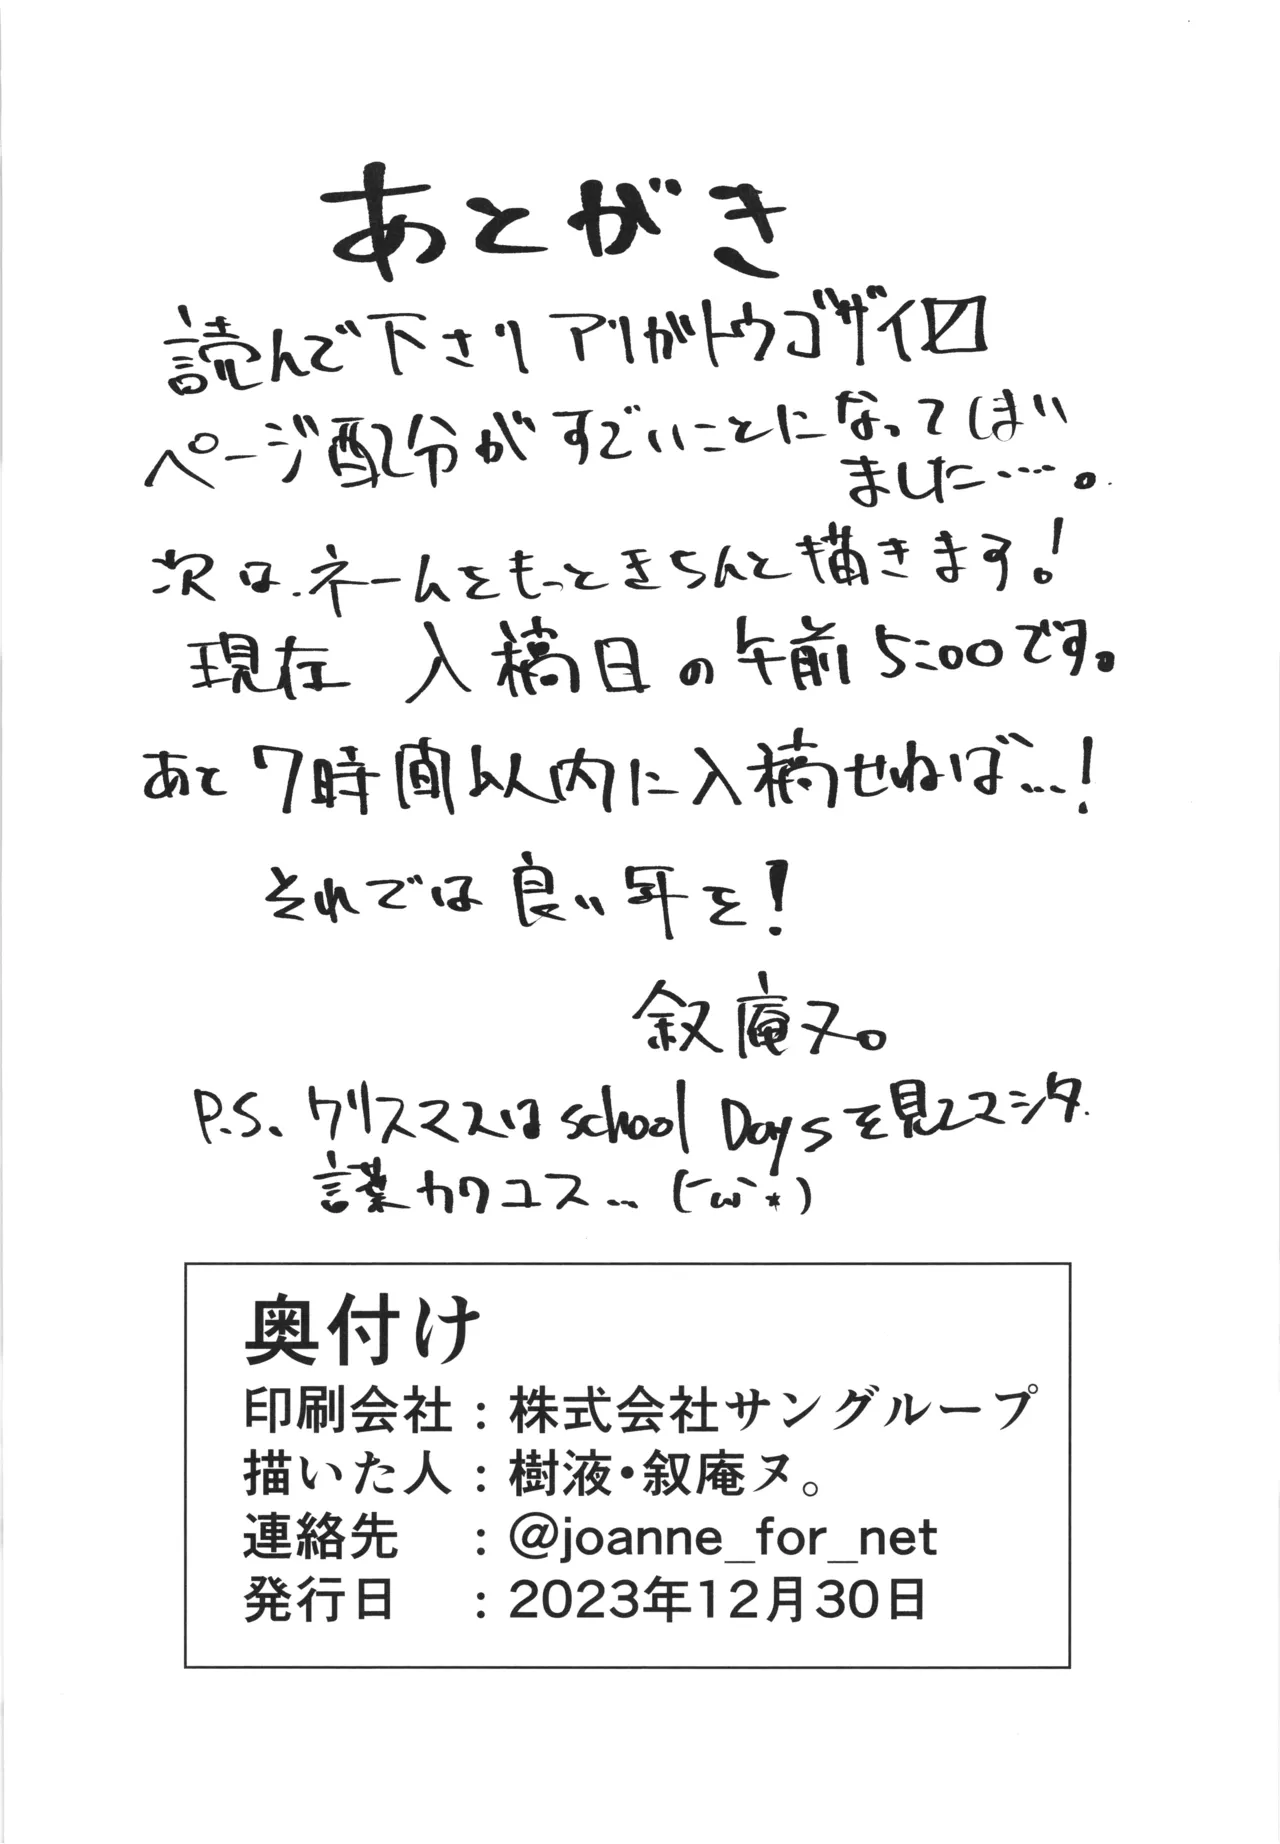 あとがき
読んで下さりアリガトウゴザイ〼
ページ配分がすごいことになってしまい
ました…。
次は、ネームをもっときちんと描きます！
現在 入稿日の午前5:00です。
あと7時間以内に入稿せねば…！
それでは良い年を！
叙庵ヌ。
P.S. クリスマスはschool Daysを見てマシタ
言葉カワユス…(´ω`*)
奥付け
印刷会社：株式会社サングループ
描いた人：樹液・叙庵ヌ。
連絡先　：@joanne_for_net
発行日　：2023年12月30日